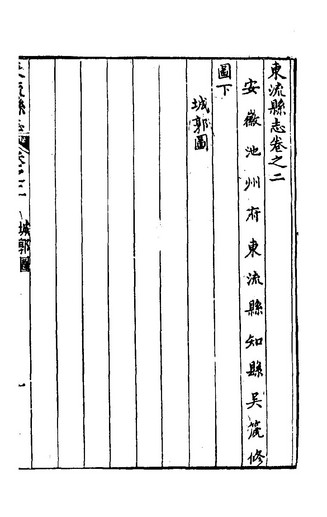 東流縣志卷之二
安徽池州府東流縣知縣吳篪修
圖下
城郭圖
東流縣志 卷之二 城郭圖 一